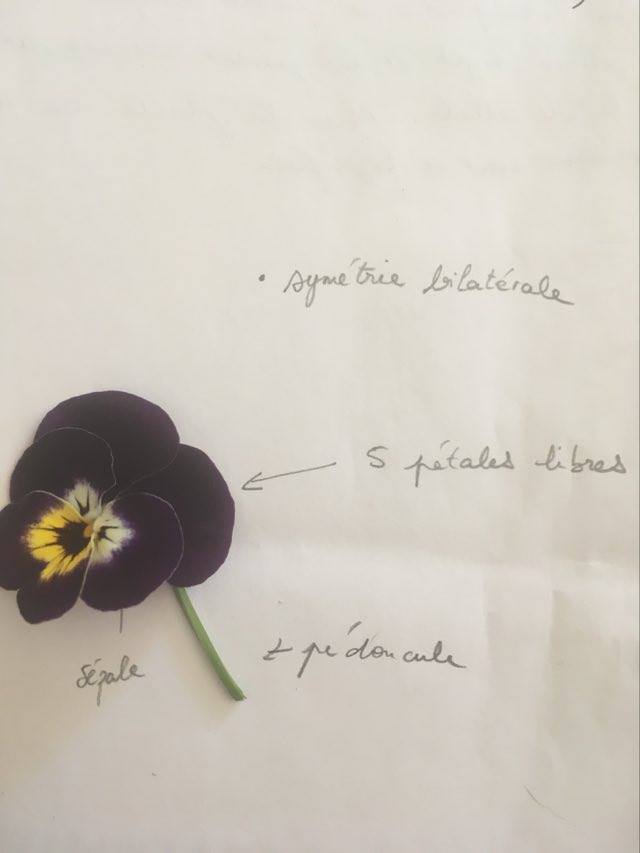 • symétrie bilatérale
5 pétales libres
pédoncule
sépale